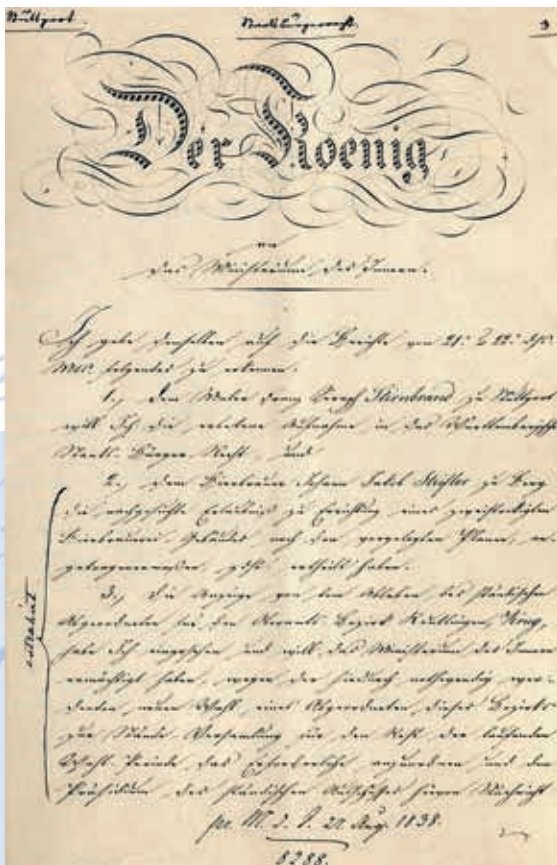 Stuttgart. Staatsbürgerrecht. 3
Der Koenig
an
das Ministerium des Innern.
Ich gebe demselben auf die Berichte vom 21. & 22. dß.
Mts. folgendes zu erkennen.
1., dem Maler Franz Seraph Stirnbrand zu Stuttgart
will Ich die erbetene Aufnahme in das Württembergische
Staats-Bürger-Recht, und
2., dem Bierbrauer Johann Jakob zu Berg
die nachgesuchte Erlaubniß zu Errichtung eines zweistockigten
Bierbrauerei-Gebäudes nach den vorgelegten Planen,
ertheilt haben.
3., die Anzeige von dem Ableben des ständischen
Abgeordneten für den Oberamts-Bezirk Reuttlingen,
habe Ich eingesehen und will das Ministerium des Innern
ermächtigt haben, wegen der hiedurch nothwendig wer-
denden neuen Wahl eines Abgeordneten dieses Bezirks
zur Stände-Versamlung für den Rest der laufenden
Wahl-Periode das Erforderliche anzuordnen und dem
Präsidium des ständischen Ausschußes hievon Nachricht
pr. M. d. I. Aug. 1838.
5288.
extrahirt